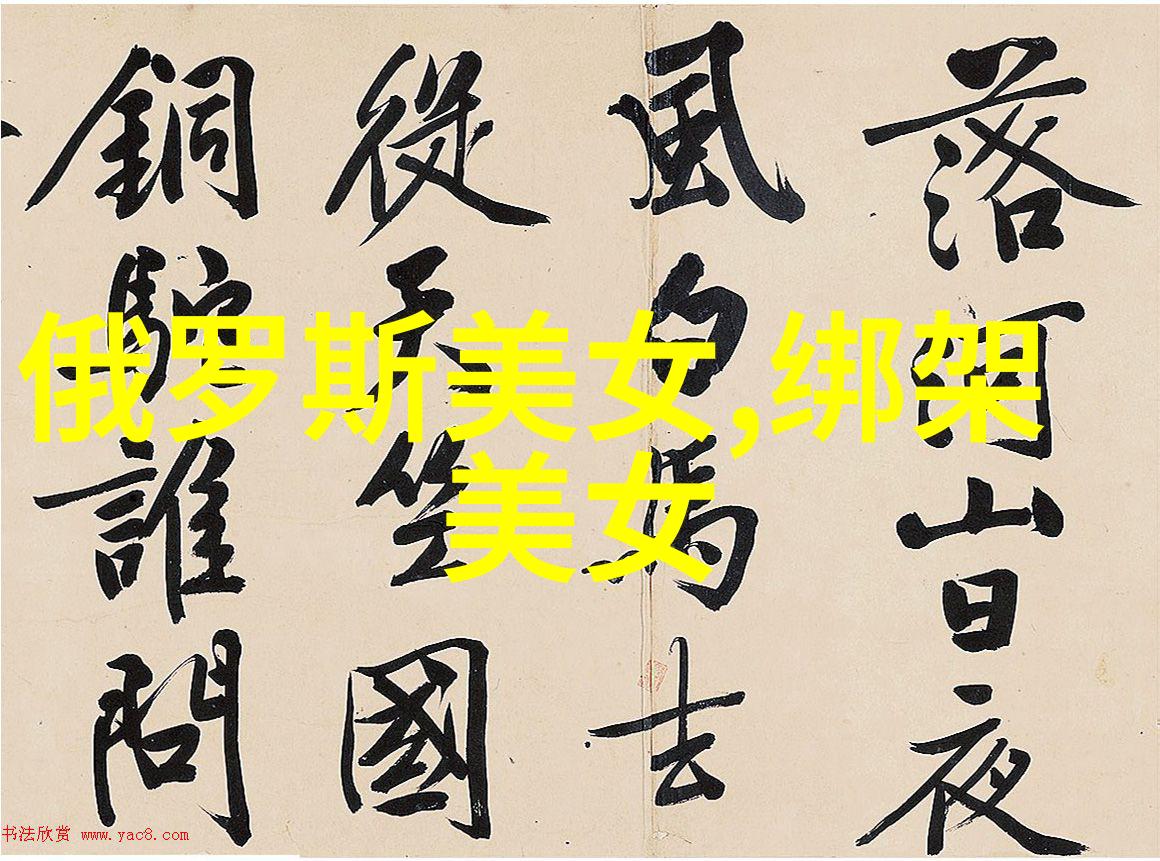 落河山日夜
風白馬去
從天竺國
銅駝誰問
俄罗斯美女,绑架
美女
书法欣赏 www.yac8.com